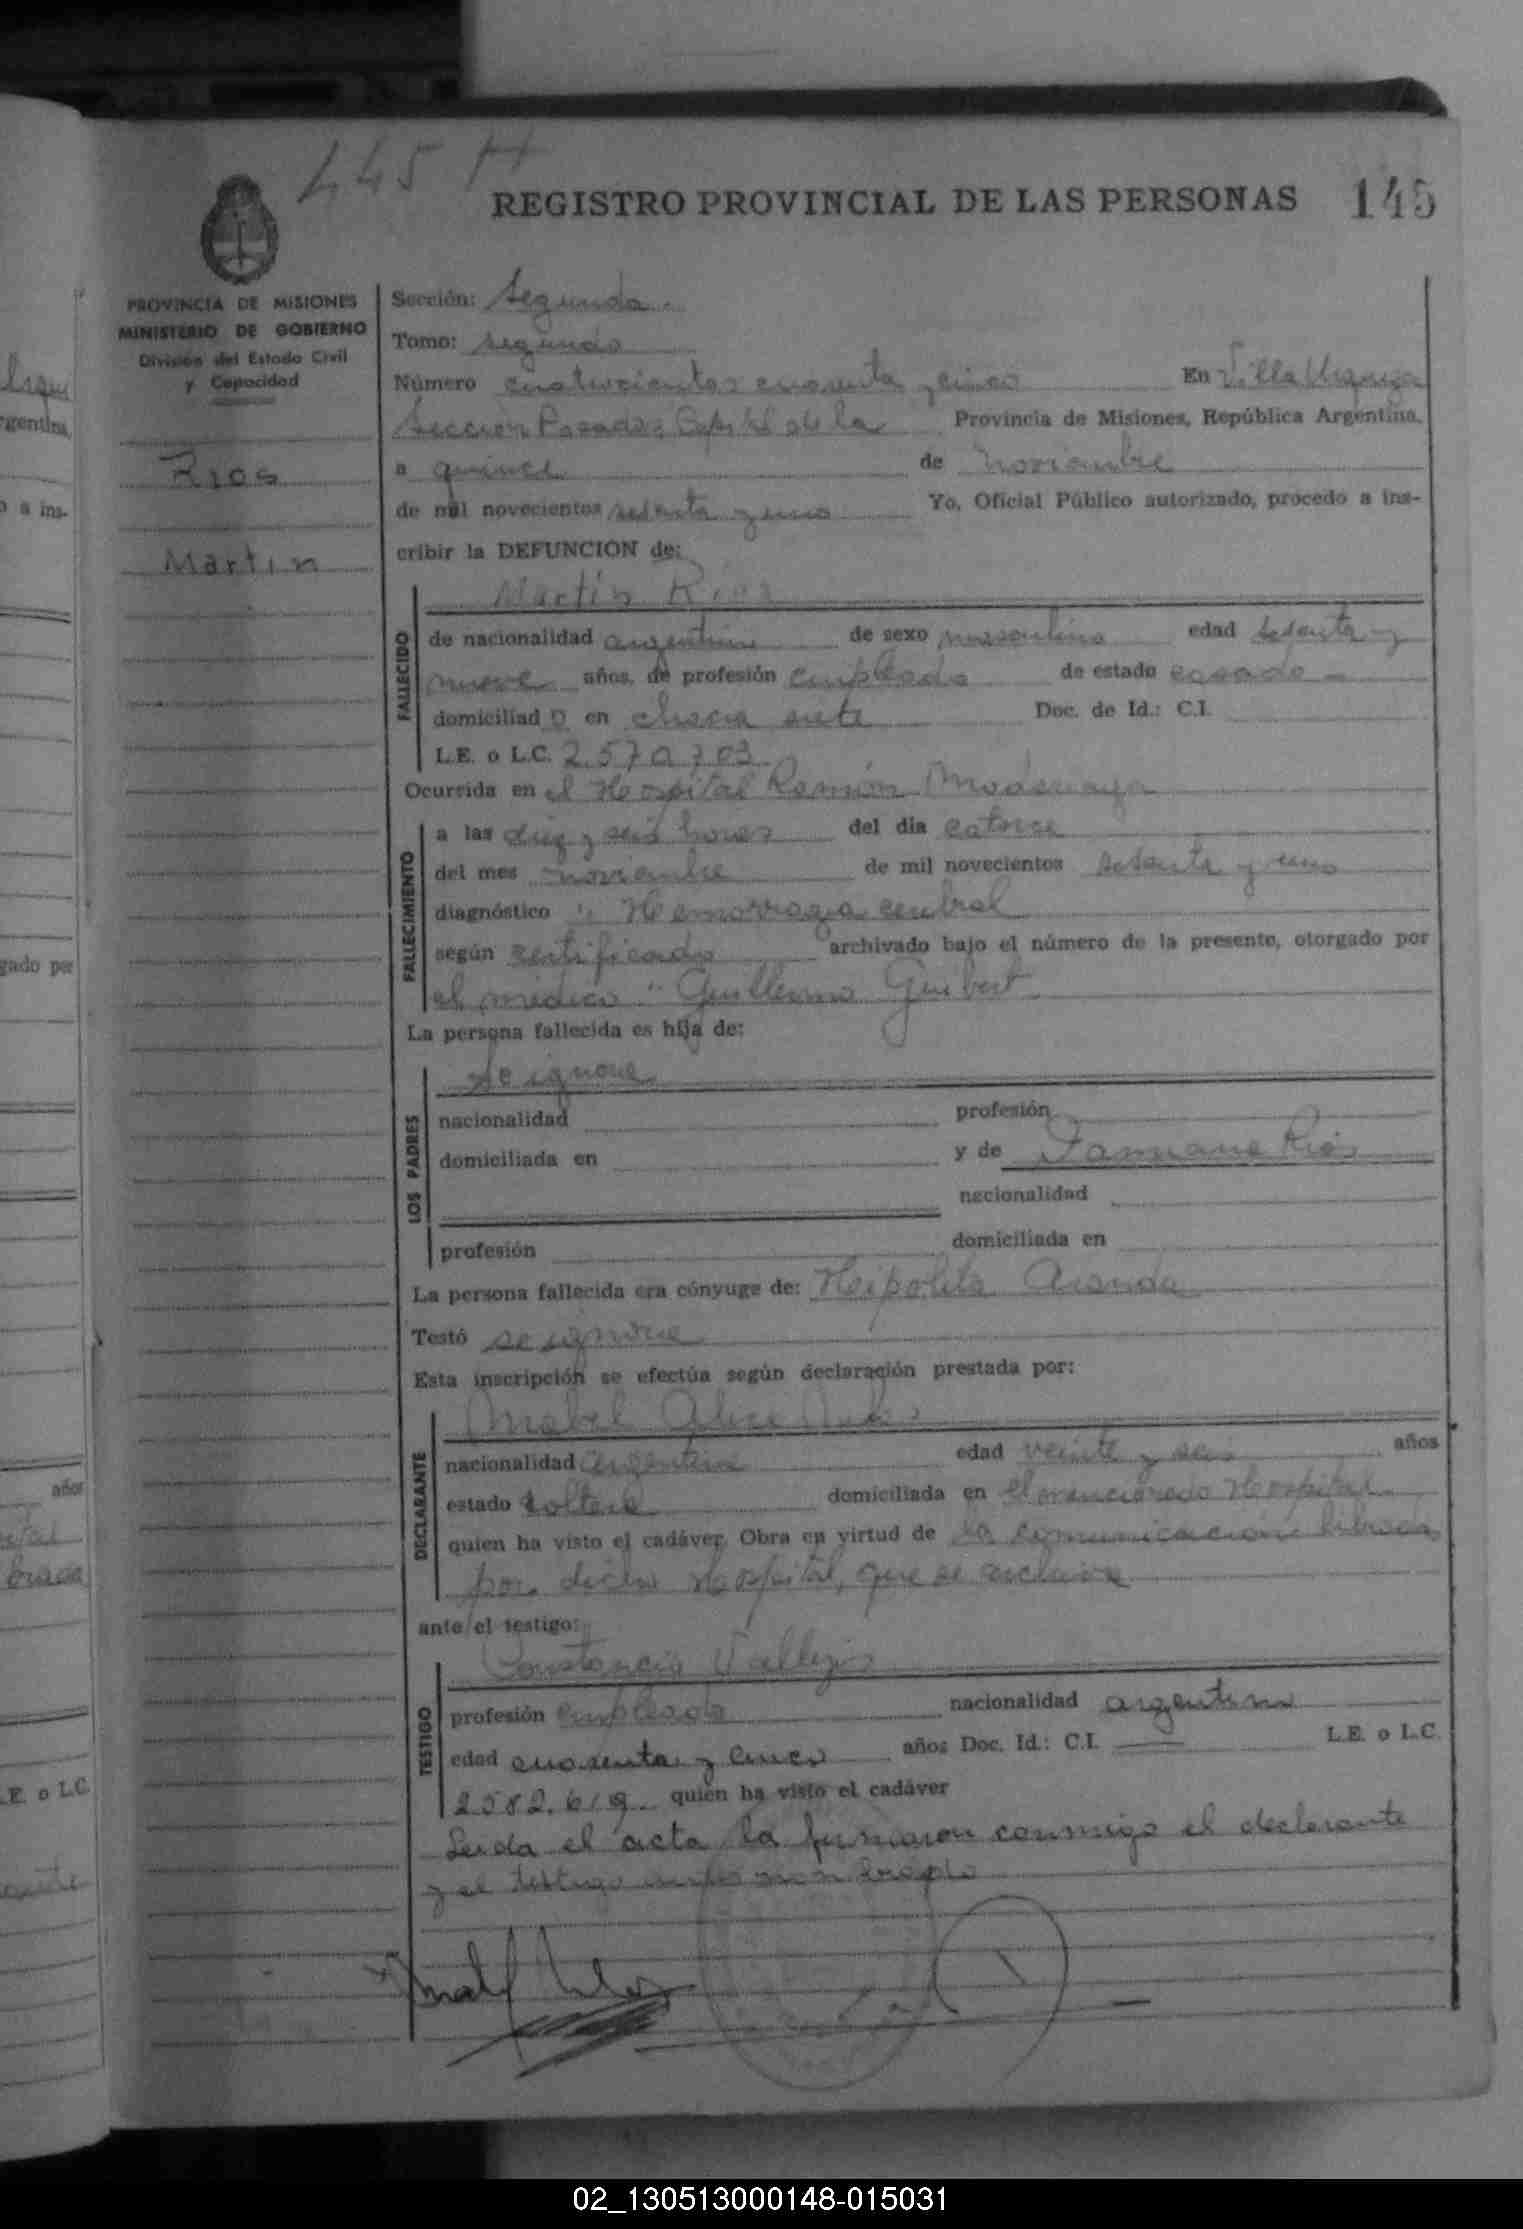 445 H
REGISTRO PROVINCIAL DE LAS PERSONAS 145
PROVINCIA DE MISIONES
MINISTERIO DE GOBIERNO
División del Estado Civil
y Capacidad
Rios
Martin
Sección: Segunda.
Tomo: segundo
Número cuatrocientos cuarenta y cinco En Villa Urquiza
Sección Posadas Capital de la Provincia de Misiones, República Argentina,
a quince de noviembre
de mil novecientos setenta y uno Yo, Oficial Público autorizado, procedo a ins-
cribir la DEFUNCION de:
Martín Ríos
FALLECIDO
de nacionalidad argentina de sexo masculino edad sesenta y
nueve años, de profesión empleado de estado casado
domiciliado en chacra siete Doc. de Id.: C.I.
L.E. o L.C. 2.570.703
Ocurrida en el Hospital Ramón Madariaga
FALLECIMIENTO
a las diez y seis horas del día catorce
del mes noviembre de mil novecientos setenta y uno
diagnóstico Hemorragia cerebral
según certificado archivado bajo el número de la presente, otorgado por
el médico Guillermo
La persona fallecida es hija de:
LOS PADRES
Se ignora
nacionalidad profesión
domiciliada en y de Ríos
nacionalidad
profesión domiciliada en
La persona fallecida era cónyuge de: Heipolita Aranda
Testó se ignora
Esta inscripción se efectúa según declaración prestada por:
DECLARANTE
Mabel
nacionalidad argentina edad veinte y seis años
estado soltera domiciliada en el mencionado Hospital
quien ha visto el cadáver. Obra en virtud de la comunicación librada
por dicho Hospital, que se archiva
ante el testigo:
TESTIGO
Constancio Vallejos
profesión empleado nacionalidad argentino
edad cuarenta y cinco años Doc. Id.: C.I. L.E. o L.C.
2582.619 quien ha visto el cadáver
Leida el acta la firmaron conmigo el declarante
y el testigo
02_130513000148-015031